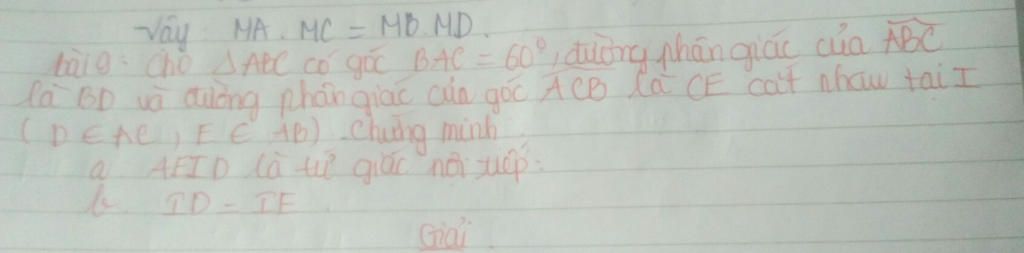 Vậy: MA. MC = MB. MD.
bài 9: Cho △ABC có góc BAC = 60°, đường phân giác của ABC
là BD và đường phân giác của góc ACB là CE cắt nhau tại I
(D ∈ AC, E ∈ AB). Chứng minh
a. AEID là tứ giác nội tiếp.
b. ID = IE
Giải